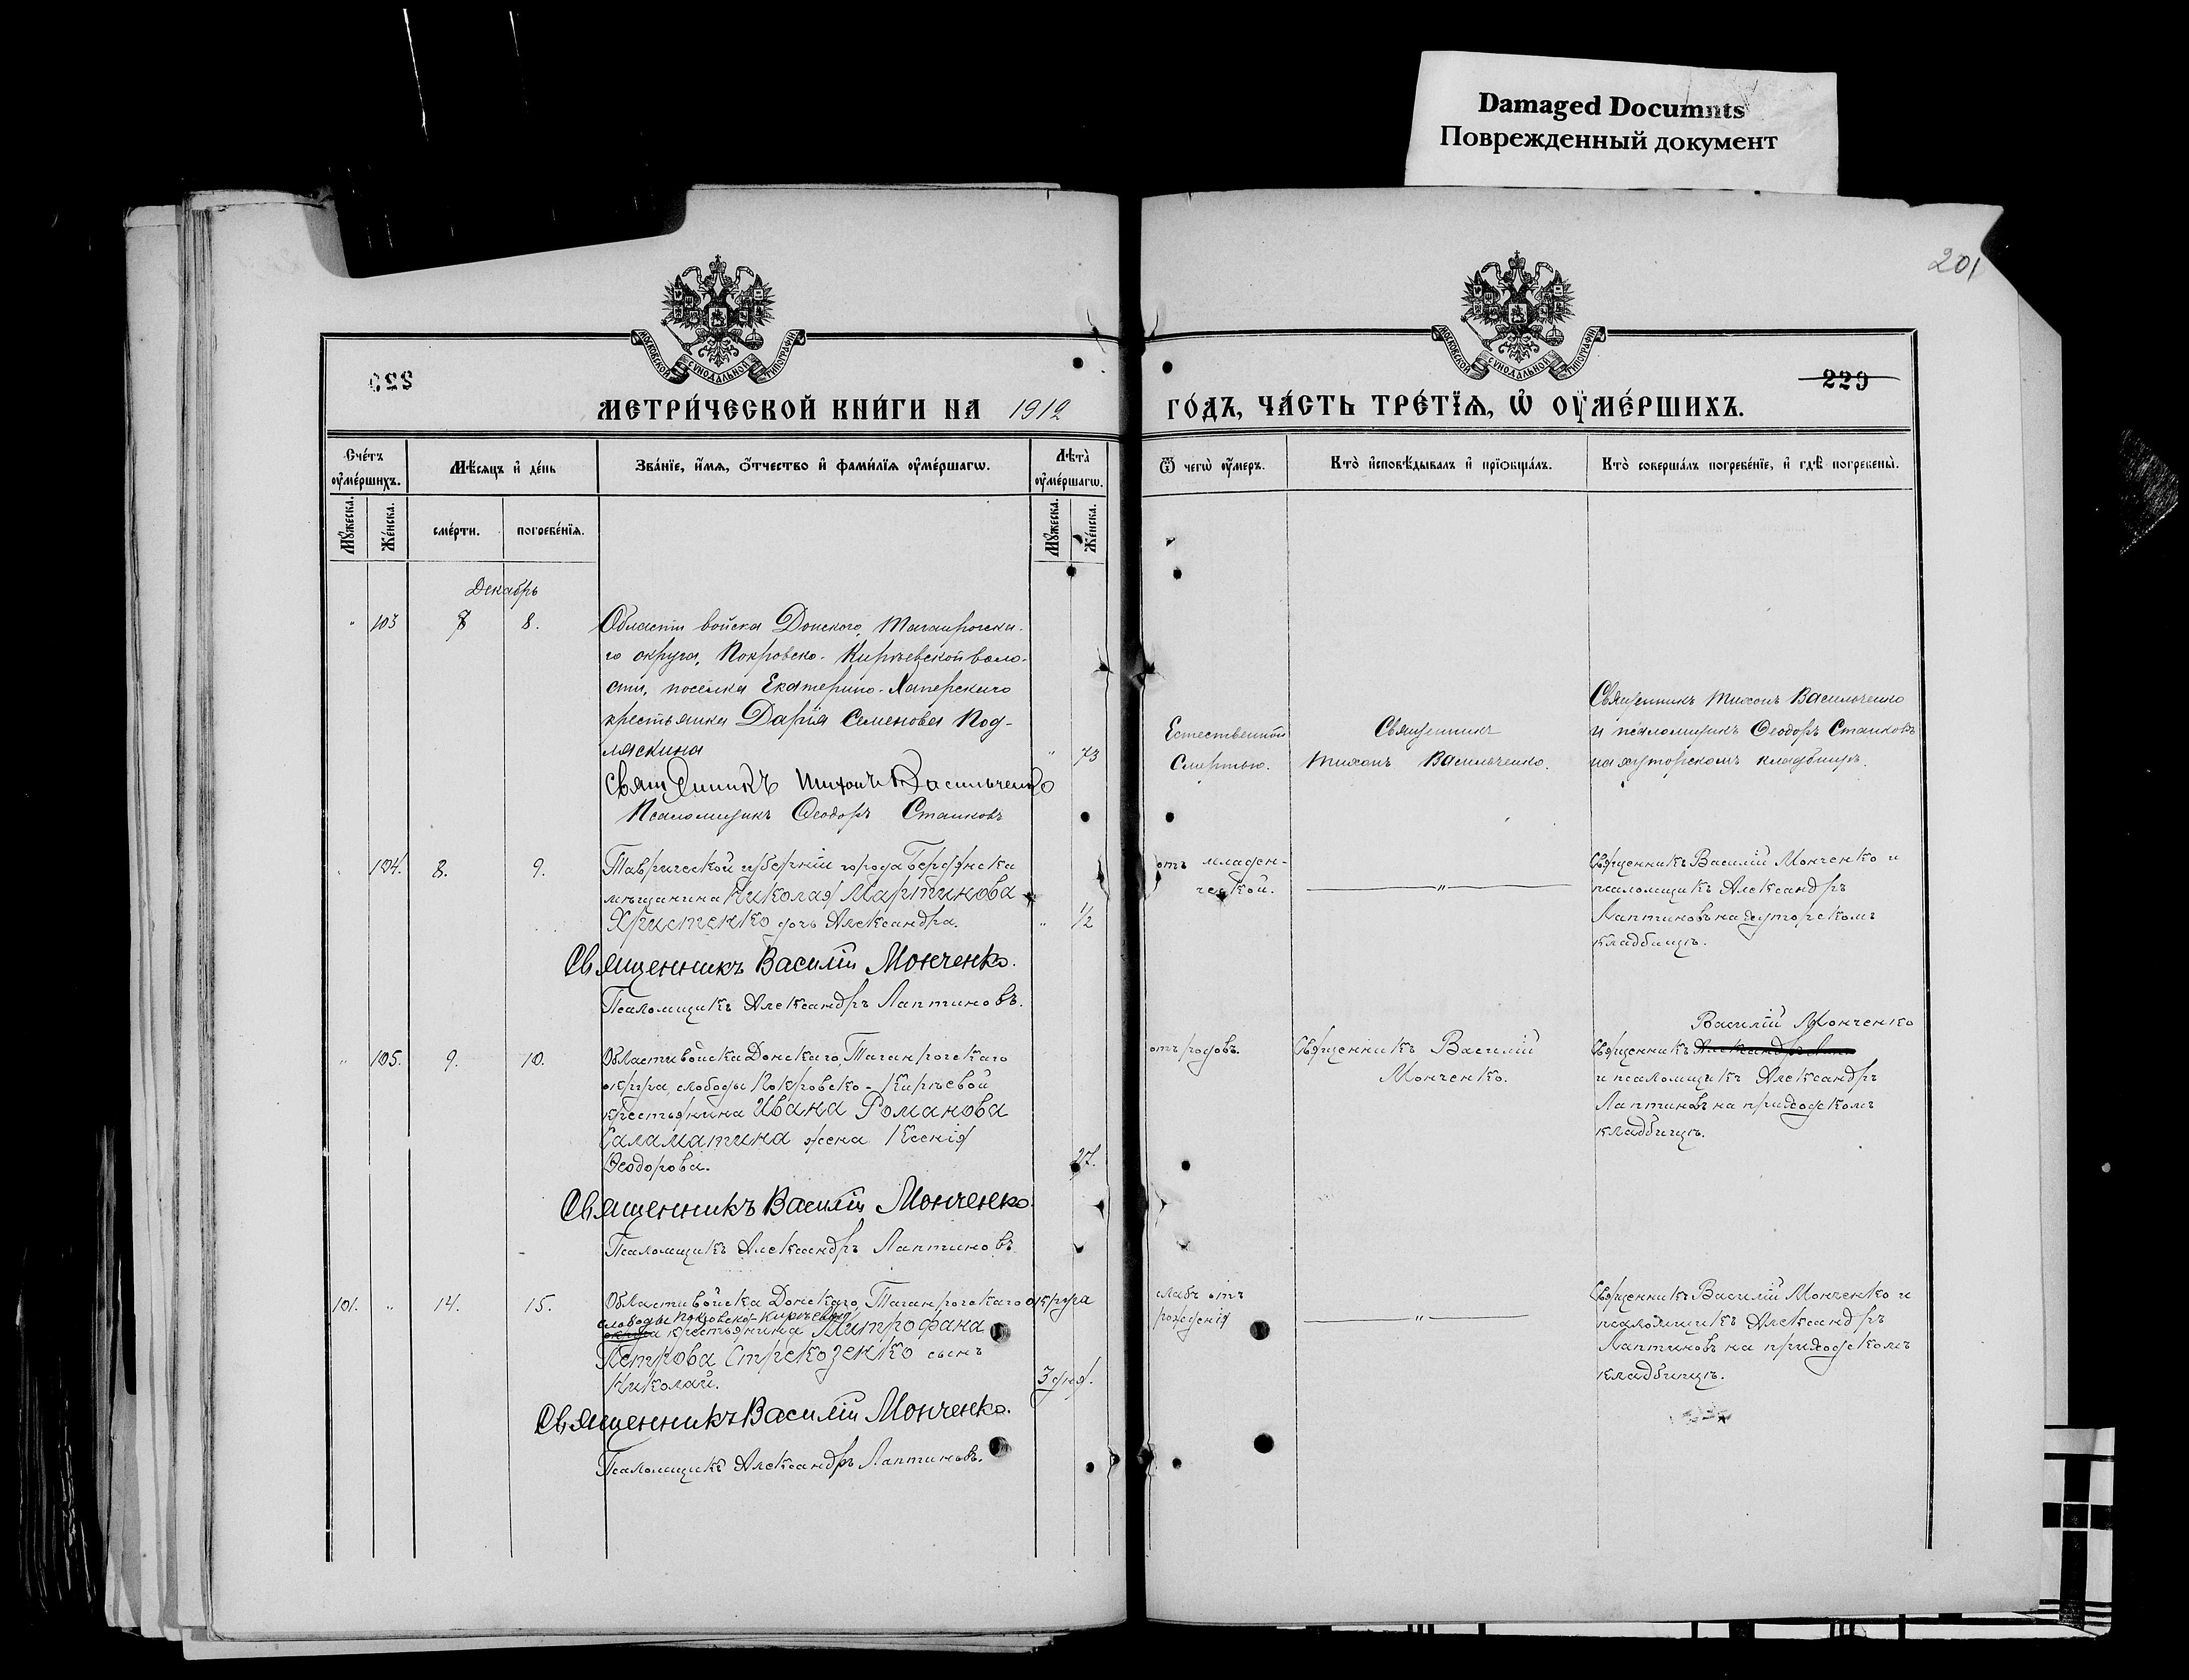 Damaged Documnts
Поврежденный документ
201
229
229
МОСКОВСКОЙ СУНОДАЛЬНОЙ ТИПОГРАФІИ
МОСКОВСКОЙ СУНОДАЛЬНОЙ ТИПОГРАФІИ
МЕТРИ́ЧЕСКОЙ КНИ́ГИ НА 1912
ГО́ДЪ, ЧА́СТЬ ТРЕ́ТЇѦ, Ѡ҆ ОУ҆МЕ́РШИХЪ.
Сче́тъ оу҆ме́ршихъ.
Мѣ́сяцъ и҆ де́нь
Зва́нїе, и҆́мѧ, ѻ҆́тчество и҆ фами́лїѧ оу҆ме́ршагѡ.
Лѣта̀ оу҆ме́ршагѡ.
Ѿ чегѡ̀ оу҆́меръ.
Кто̀ и҆сповѣ́дывалъ и҆ прїѡбща́лъ.
Кто̀ соверша́лъ погребе́нїе, и҆ гдѣ̀ погребены̀.
Мꙋ́жеска.
Же́нска.
сме́рти.
погребе́нїѧ.
Мꙋ́жеска.
Же́нска.
Декабрь
" 103 7 8.
Области войска Донского, Таганрогска-
го округа, Покровско-Киреевской воло-
сти, поселка Екатерино-Хаперскаго
крестьянка Дарія Семенова Под-
ляскина " 73
Священникъ Тихонъ Васильченко
Псаломщикъ Ѳеодоръ Станковъ
Естественной
Смертью.
Священникъ
Тихонъ Васильченко.
Священникъ Тихонъ Васильченко
и псаломщикъ Ѳеодоръ Станковъ
на хуторскомъ кладбищѣ.
" 104. 8. 9.
Таврической губерніи города Бердянска
мѣщанина Николая Мартинова
Христенко дочь Александра. " 1/2
Священникъ Василій Монченко.
Псаломщикъ Александръ Лаптиновъ.
отъ младен-
ческой.
"
Священникъ Василій Монченко и
псаломщикъ Александръ
Лаптиновъ на хуторскомъ
кладбищѣ.
" 105. 9. 10.
Области войска Донскаго, Таганрогскаго
округа, слободы Покровско-Кирѣевой
крестьянина Ивана Романова
Саламатина жена Ксенія
Ѳеодорова. 27.
Священникъ Василій Монченко.
Псаломщикъ Александръ Лаптиновъ
отъ родовъ.
Священникъ Василій
Монченко.
Василій Монченко
Священникъ
и псаломщикъ Александръ
Лаптиновъ на приходскомъ
кладбищѣ.
101. " 14. 15.
Области войска Донскаго, Таганрогскаго округа
слободы Покровско-Кирѣевой
округа крестьянина Митрофана
Петрова Стрекозенко сынъ
Николай. 3 дня.
Священникъ Василій Монченко.
Псаломщикъ Александръ Лаптиновъ.
слабъ отъ
рожденія
"
Священникъ Василій Монченко и
псаломщикъ Александръ
Лаптиновъ на приходскомъ
кладбищѣ.